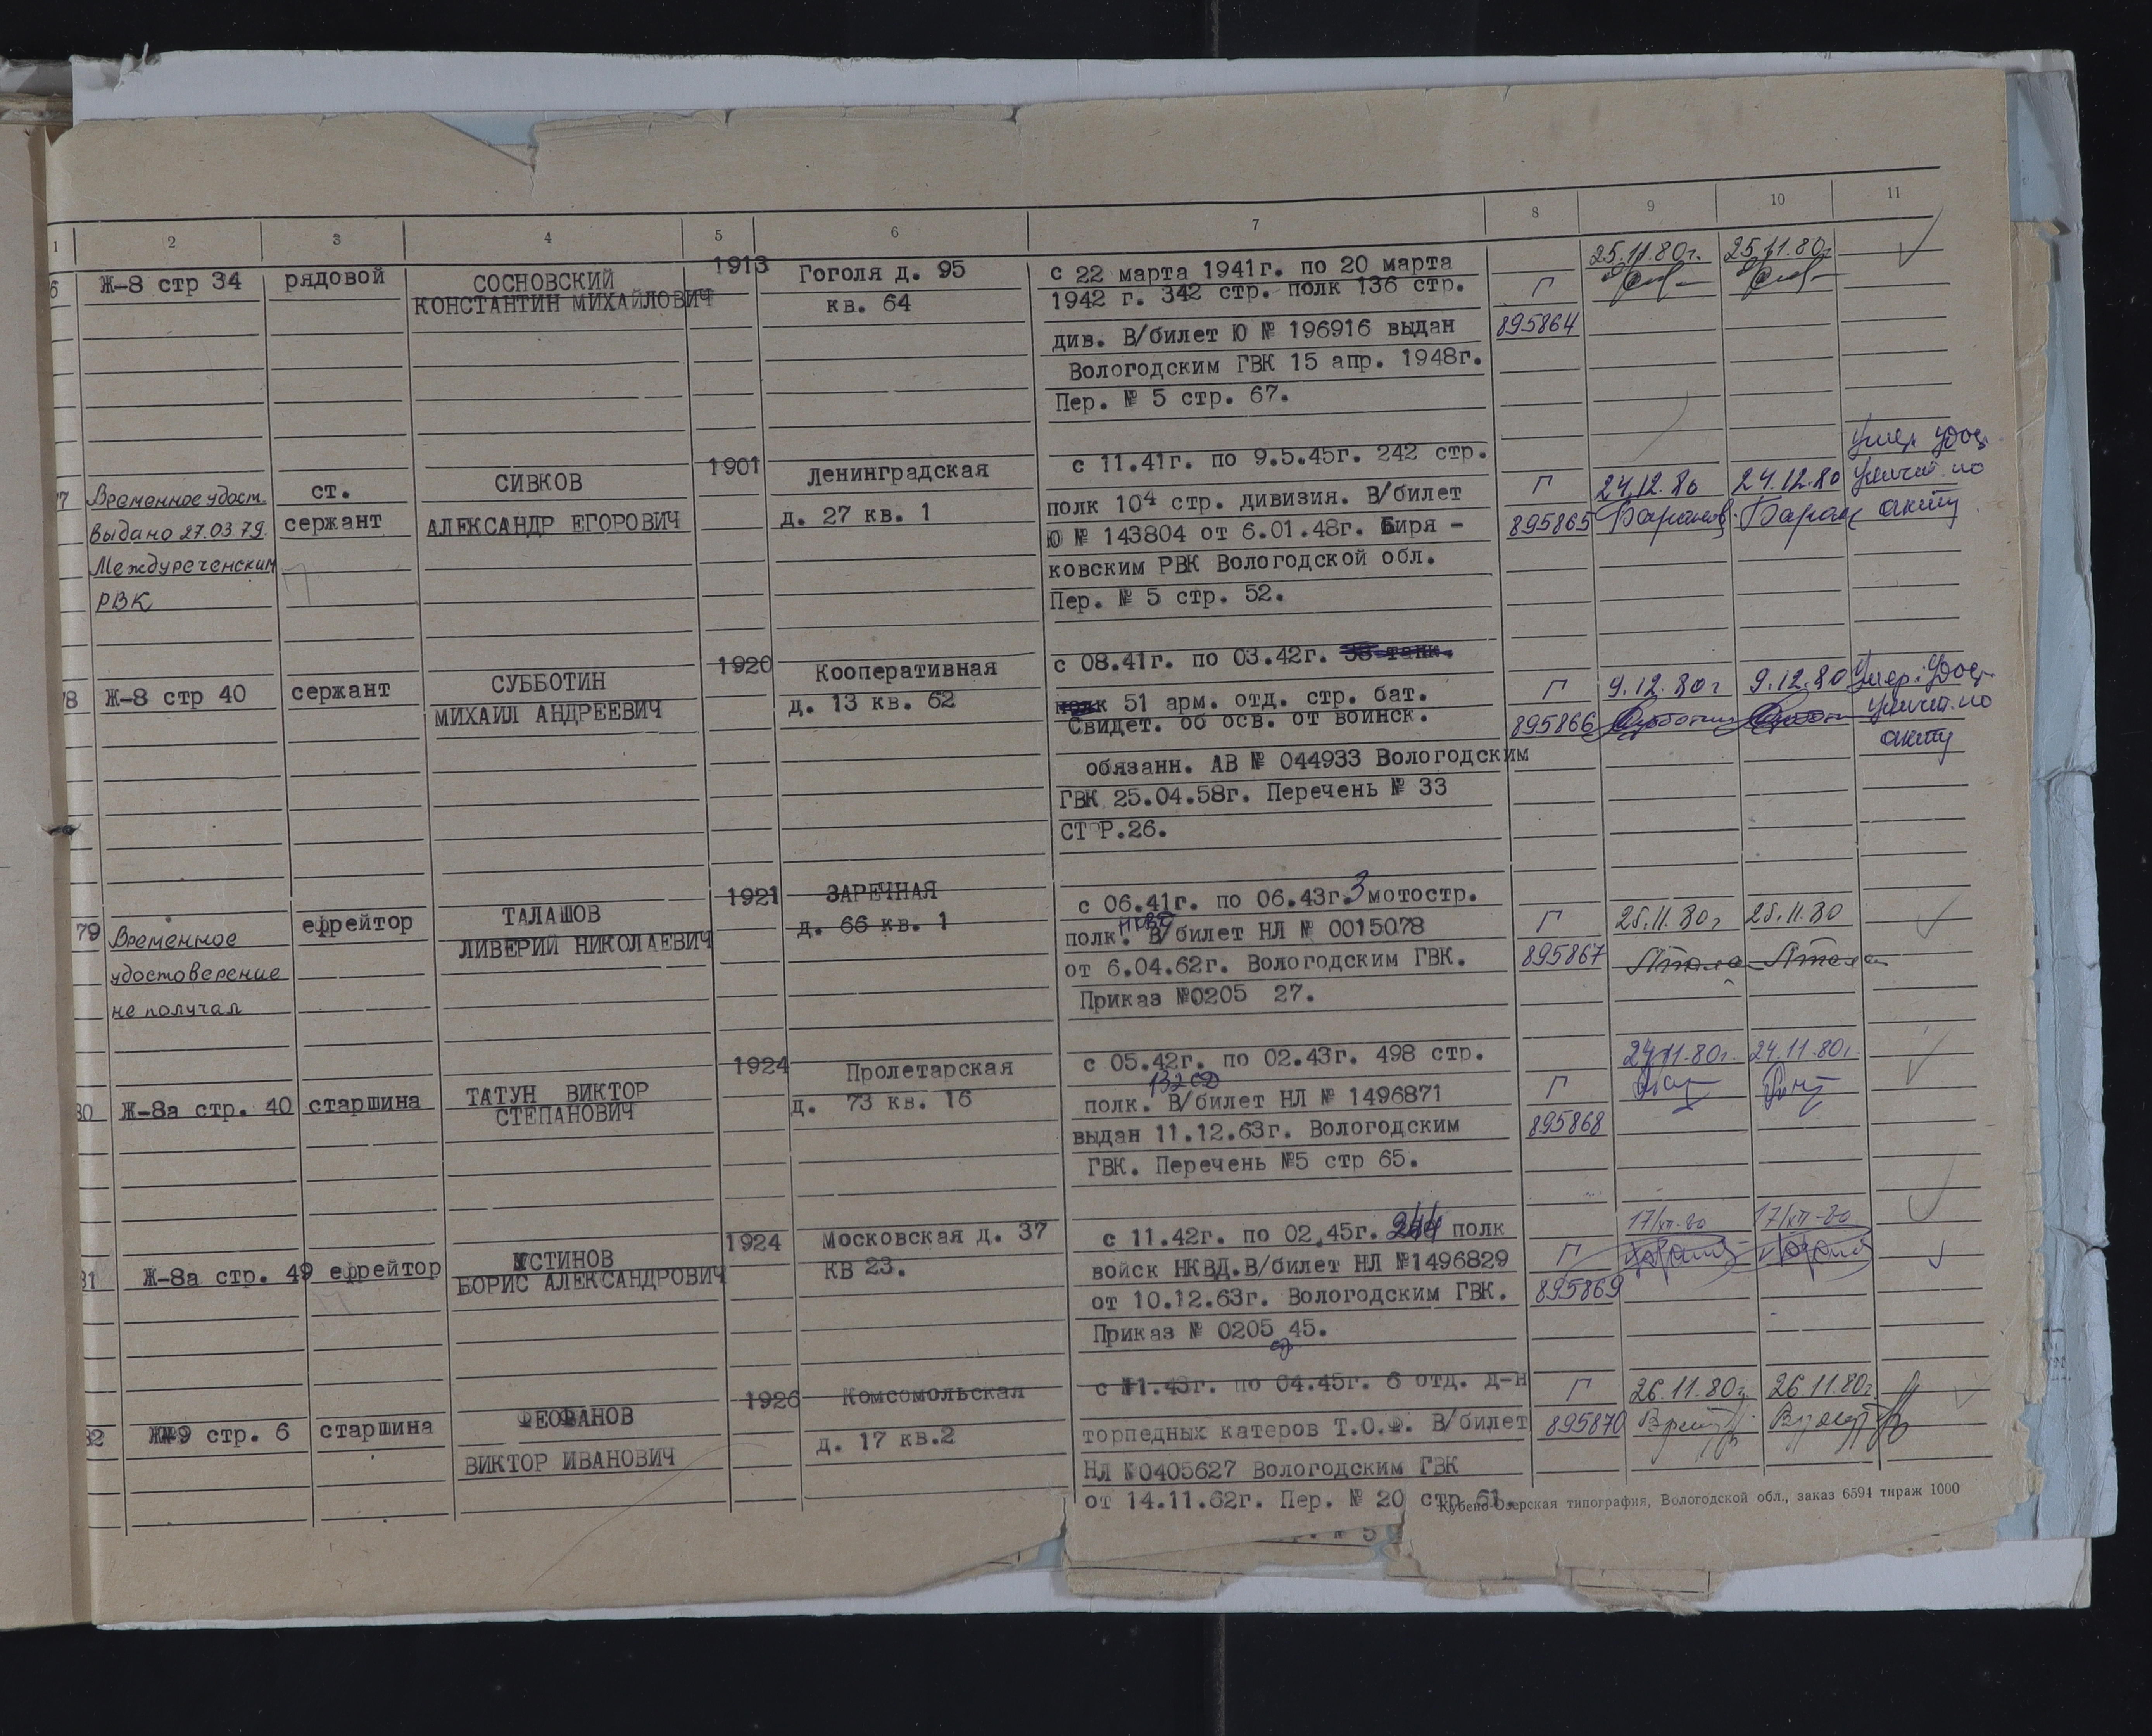 1 2 3 4 5 6 7 8 9 10 11
6 Ж-8 стр 34 рядовой СОСНОВСКИЙ 1913 Гоголя д. 95 с 22 марта 1941г. по 20 марта 25.11.80г. 25.11.80г
КОНСТАНТИН МИХАЙЛОВИЧ кв. 64 1942 г. 342 стр. полк 136 стр. Г
див. В/билет Ю № 196916 выдан 895864
Вологодским ГВК 15 апр. 1948г.
Пер. № 5 стр. 67.
7 Временное удост. ст. СИВКОВ 1901 Ленинградская с 11.41г. по 9.5.45г. 242 стр. Г 24.12.80 24.12.80 Умер. удос.
выдано 27.03 79. сержант АЛЕКСАНДР ЕГОРОВИЧ д. 27 кв. 1 полк 104 стр. дивизия. В/билет 895865 уничт. по
Междуреченским Ю № 143804 от 6.01.48г. Биря - акту
РВК ковским РВК Вологодской обл.
Пер. № 5 стр. 52.
8 Ж-8 стр 40 сержант СУББОТИН 1920 Кооперативная с 08.41г. по 03.42г. 38 танк. Г 9.12.80г 9.12.80 Умер. Удос.
МИХАИЛ АНДРЕЕВИЧ д. 13 кв. 62 полк 51 арм. отд. стр. бат. 895866 уничт. по
Свидет. об осв. от воинск. акту
обязанн. АВ № 044933 Вологодским
ГВК 25.04.58г. Перечень № 33
СТ Р.26.
79 Временное ефрейтор ТАЛАШОВ 1921 ЗАРЕЧНАЯ с 06.41г. по 06.43г. 3 мотостр. Г 25.11.80г 25.11.80
удостоверение ЛИВЕРИЙ НИКОЛАЕВИЧ д. 66 кв. 1 полк. В/билет НЛ № 0015078 895867
не получал от 6.04.62г. Вологодским ГВК.
Приказ №0205 27.
80 Ж-8а стр. 40 старшина ТАТУН ВИКТОР 1924 Пролетарская с 05.42г. по 02.43г. 498 стр. 24.11.80г. 24.11.80г.
СТЕПАНОВИЧ д. 73 кв. 16 132 СД Г
полк. В/билет НЛ № 1496871 895868
выдан 11.12.63г. Вологодским
ГВК. Перечень №5 стр 65.
81 Ж-8а стр. 49 ефрейтор УСТИНОВ 1924 Московская д. 37 с 11.42г. по 02.45г. 244 полк 17/XII-80 17/XII-80
БОРИС АЛЕКСАНДРОВИЧ КВ 23. войск НКВД.В/билет НЛ №1496829 Г
от 10.12.63г. Вологодским ГВК. 895869
Приказ № 0205 45.
82 Ж-9 стр. 6 старшина ФЕОФАНОВ 1926 Комсомольская с 11.43г. по 04.45г. 6 отд. д-н Г 26.11.80г. 26.11.80г.
ВИКТОР ИВАНОВИЧ д. 17 кв.2 торпедных катеров Т.О.Ф. В/билет 895870
НЛ №0405627 Вологодским ГВК
от 14.11.62г. Пер. № 20 стр 61.
Кубено-Озерская типография, Вологодской обл., заказ 6594 тираж 1000